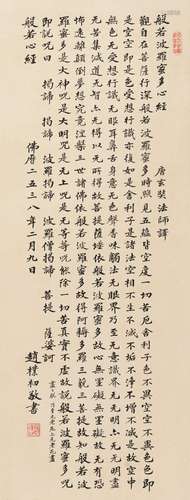 般若波羅蜜多心經 唐玄奘法師譯
觀自在菩薩行深般若波羅蜜多時照見五蘊皆空度一切苦厄舍利子色不異空空不異色色即
是空空即是色受想行識亦復如是舍利子是諸法空相不生不滅不垢不淨不增不減是故空中
无色无受想行識无眼耳鼻舌身意无色聲香味觸法无眼界乃至无意識界无无明亦无无明盡
无苦集滅道无智亦无得以无所得故菩提薩埵依般若波羅蜜多故心无罣礙无罣礙故无有恐
怖遠離顛倒夢想究竟涅槃三世諸佛依般若波羅蜜多故得阿耨多羅三藐三菩提故知般若波
羅蜜多是大神咒是大明咒是无上咒是无等等咒能除一切苦真實不虛故說般若波羅蜜多咒
即說咒曰 揭諦 揭諦 波羅揭諦 波羅僧揭諦 菩提 薩婆訶
般若心經
乃至无老死亦无老死盡
佛曆二五三八年二月九日 趙樸初敬書